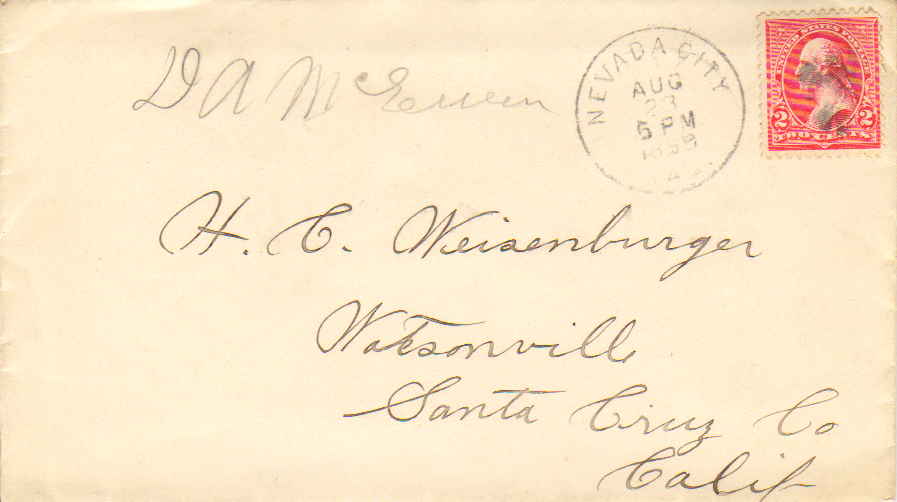 D A McEwen
NEVADA CITY
AUG
23
5 PM
1899
UNITED STATES POSTAGE
2 2
TWO CENTS
H. C. Weisenburger
Watsonville
Santa Cruz Co
Calif